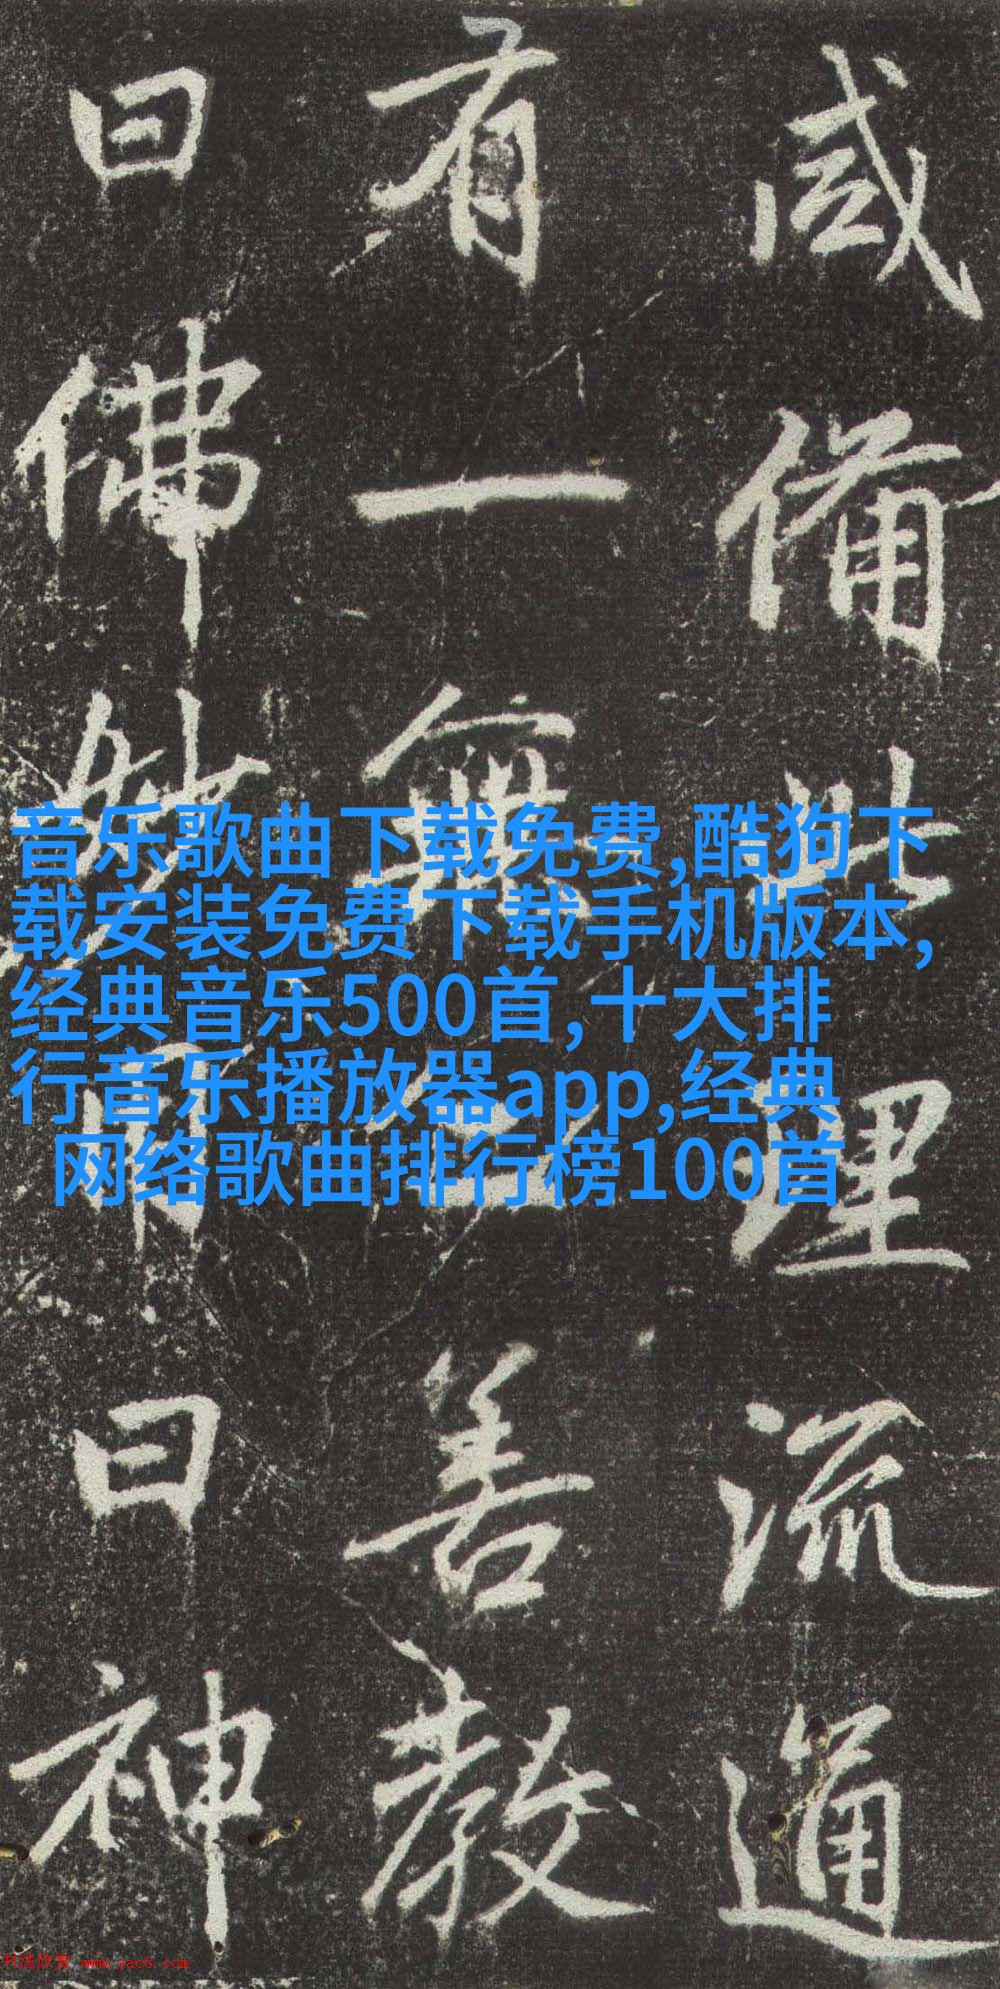 咸備此理流通
有一無善教
曰佛妙用曰神
音乐歌曲下载免费,酷狗下
载安装免费下载手机版本,
经典音乐500首,十大排
行音乐播放器app,经典
网络歌曲排行榜100首
书法欣赏 www.yac8.com